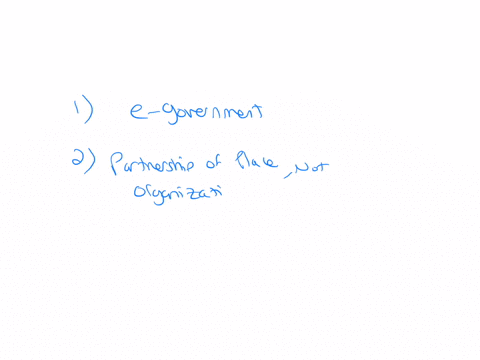 1) e-government
2) Partnership of Place, Not
Organizati